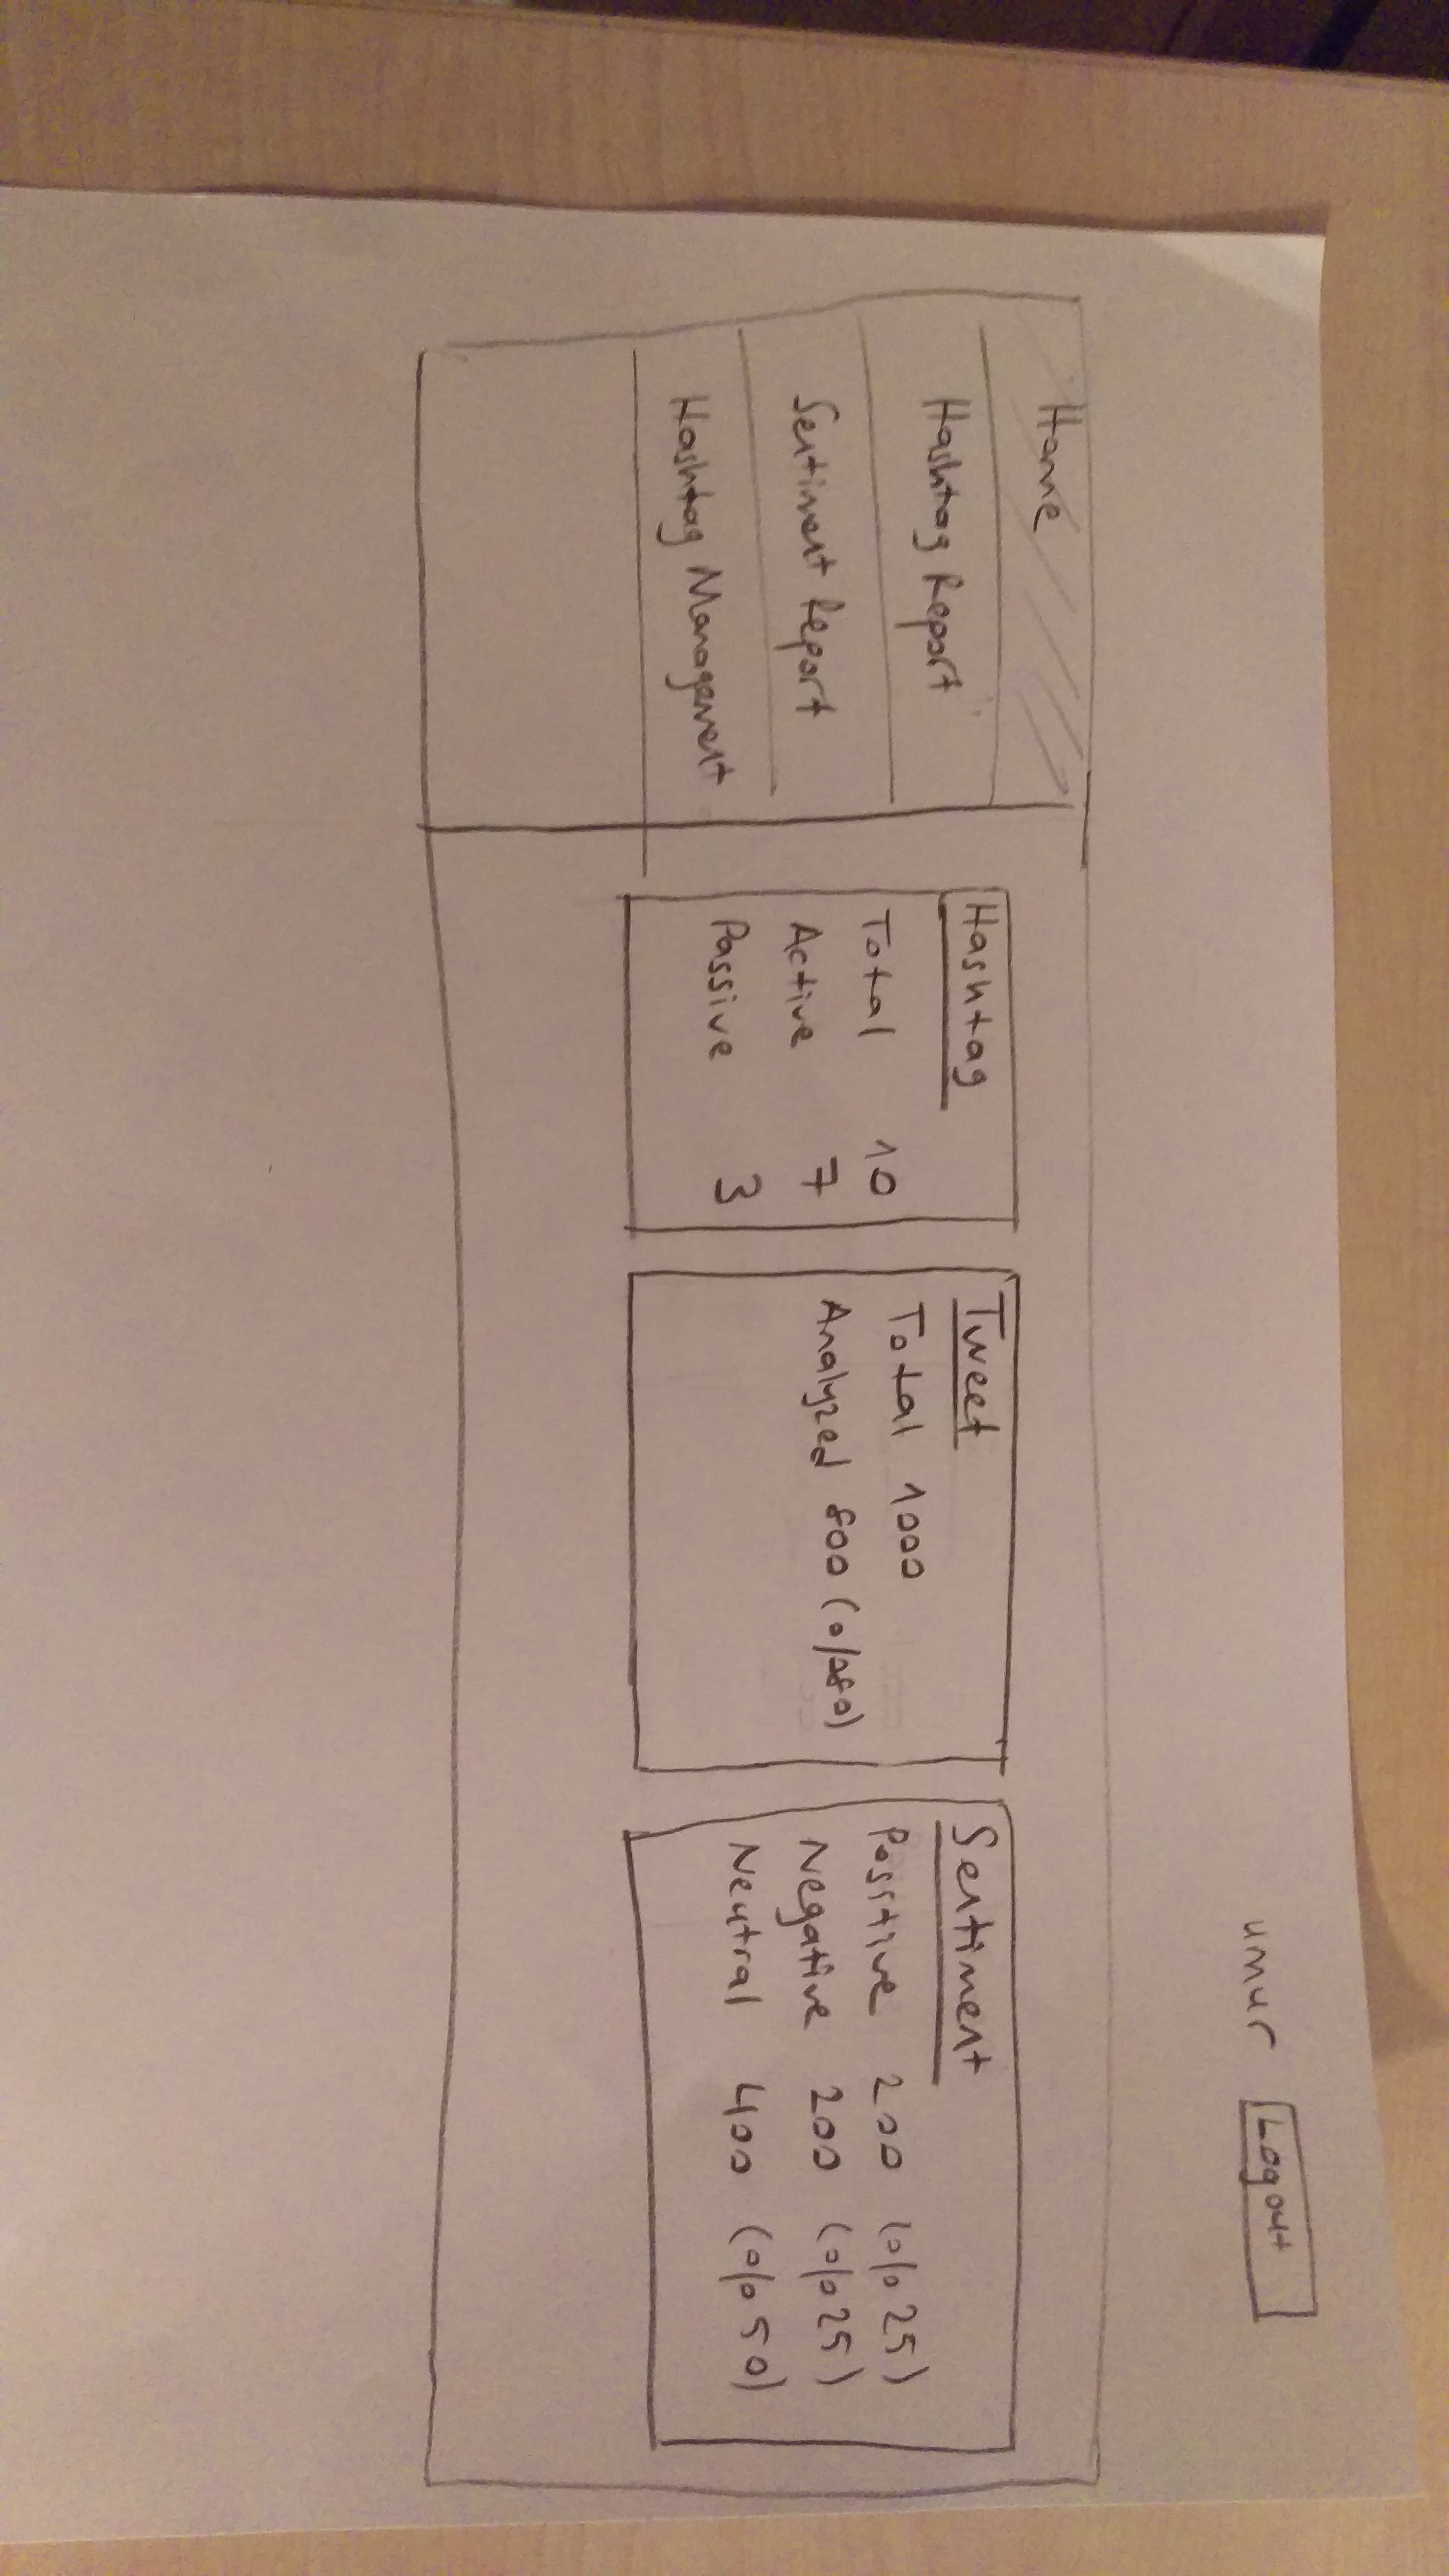 umur Logout
Home
Hashtag Report
Sentiment Report
Hashtag Management
Hashtag
Total 10
Active 7
Passive 3
Tweet
Total 1000
Analyzed 800 (%80)
Sentiment
Positive 200 (%25)
Negative 200 (%25)
Neutral 400 (%50)